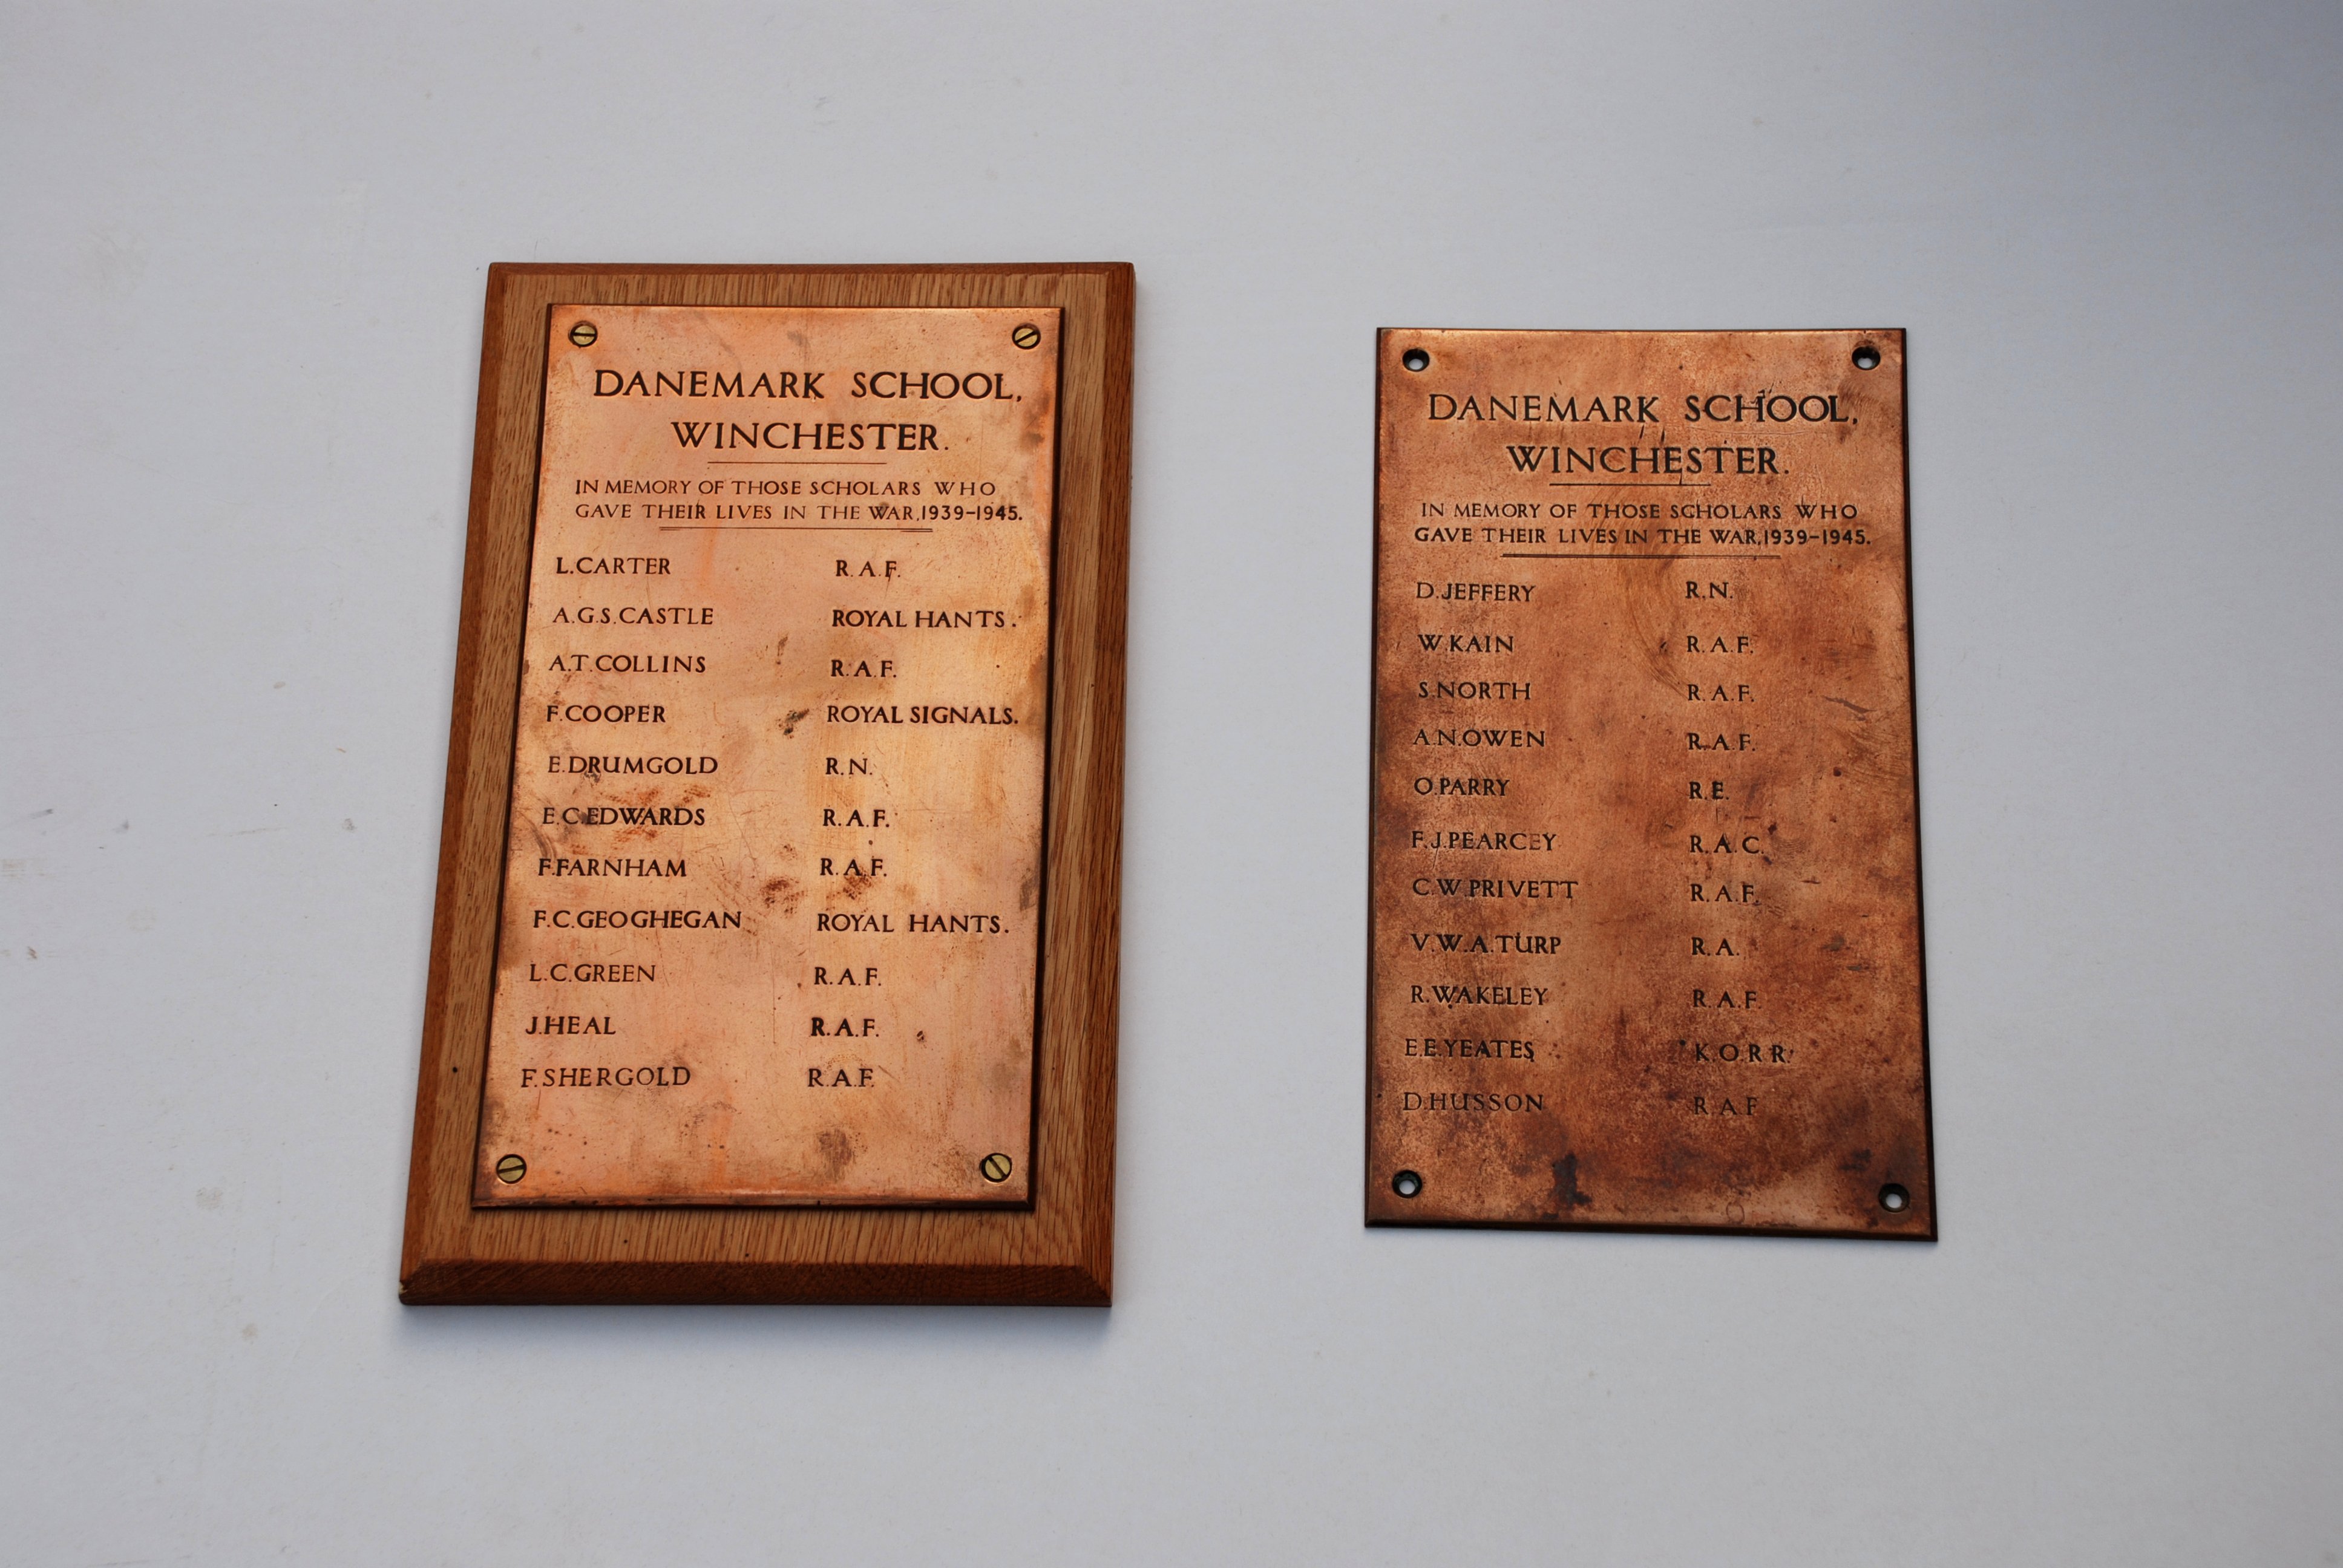 DANEMARK SCHOOL,
WINCHESTER.
IN MEMORY OF THOSE SCHOLARS WHO
GAVE THEIR LIVES IN THE WAR,1939-1945.
L.CARTER R.A.F.
A.G.S.CASTLE ROYAL HANTS.
A.T.COLLINS R.A.F.
F.COOPER ROYAL SIGNALS.
E.DRUMGOLD R.N.
E.C.EDWARDS R.A.F.
F.FARNHAM R.A.F.
F.C.GEOGHEGAN ROYAL HANTS.
L.C.GREEN R.A.F.
J.HEAL R.A.F.
F.SHERGOLD R.A.F.
DANEMARK SCHOOL,
WINCHESTER.
IN MEMORY OF THOSE SCHOLARS WHO
GAVE THEIR LIVES IN THE WAR,1939-1945.
D.JEFFERY R.N.
W.KAIN R.A.F.
S.NORTH R.A.F.
A.N.OWEN R.A.F.
O.PARRY R.E.
F.J.PEARCEY R.A.C.
C.W.PRIVETT R.A.F.
V.W.A.TURP R.A.
R.WAKELEY R.A.F.
E.E.YEATES K.O.R.R.
D.HUSSON R.A.F